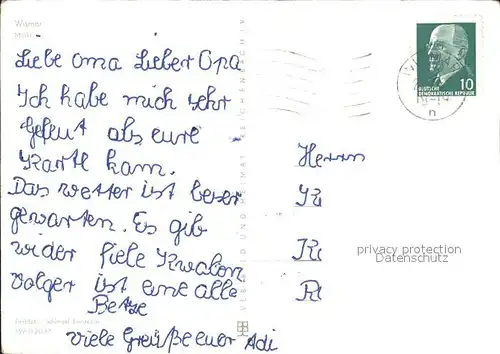 Wismar
Markt
Liebe Oma Lieber Opa
Ich habe mich sehr
gefeut als eure
Karte kam.
Das wetter ist beser
gewarten. Es gib
wider fiele Kwalon
Volger ist eine alle
Betze
viele Greüße euer Adi
Herrn
DEUTSCHE
DEMOKRATISCHE REPUBLIK
10
VERLAG BILD UND HEIMAT REICHENBACH I.V.
privacy protection
Datenschutz